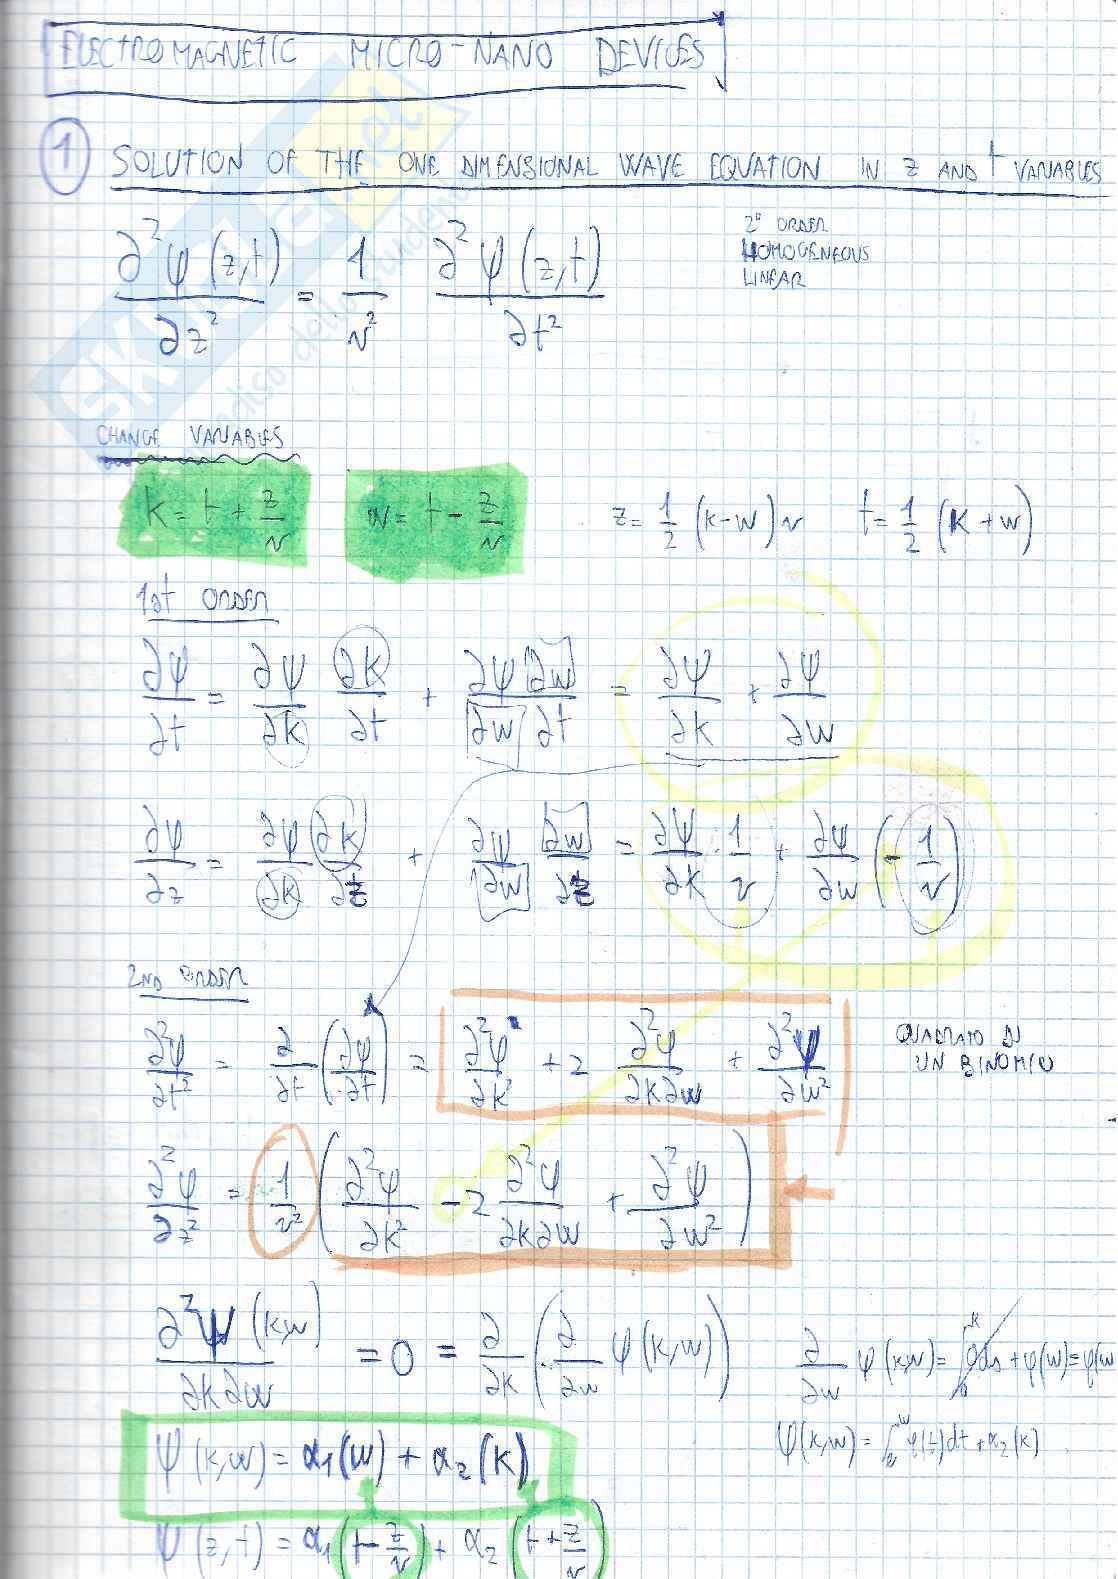 ELECTROMAGNETIC MICRO-NANO DEVICES
1 SOLUTION OF THE ONE DIMENSIONAL WAVE EQUATION IN z AND t VARIABLES
∂²ψ(z,t)/∂z² = 1/v² ∂²ψ(z,t)/∂t²
2° ORDER
HOMOGENEOUS
LINEAR
SKUOLA.net
CHANGE VARIABLES
k = t + z/v w = t - z/v z = 1/2 (k-w) v t = 1/2 (k+w)
1st ORDER
∂ψ/∂t = ∂ψ/∂k ∂k/∂t + ∂ψ/∂w ∂w/∂t = ∂ψ/∂k + ∂ψ/∂w
∂ψ/∂z = ∂ψ/∂k ∂k/∂z + ∂ψ/∂w ∂w/∂z = ∂ψ/∂k · 1/v + ∂ψ/∂w (-1/v)
2ND ORDER
∂²ψ/∂t² = ∂/∂t (∂ψ/∂t) = ∂²ψ/∂k² + 2 ∂²ψ/∂k∂w + ∂²ψ/∂w²
QUADRATO DI
UN BINOMIO
∂²ψ/∂z² = 1/v² (∂²ψ/∂k² - 2 ∂²ψ/∂k∂w + ∂²ψ/∂w²)
∂²ψ(k,w)/∂k∂w = 0 = ∂/∂k (∂/∂w ψ(k,w))
∂/∂w ψ(k,w) = ∫ 0 ds + φ(w) = φ(w
ψ(k,w) = α₁(w) + α₂(k)
ψ(k,w) = ∫ φ(t)dt + α₂(k)
ψ(z,t) = α₁(t - z/v) + α₂(t + z/v)